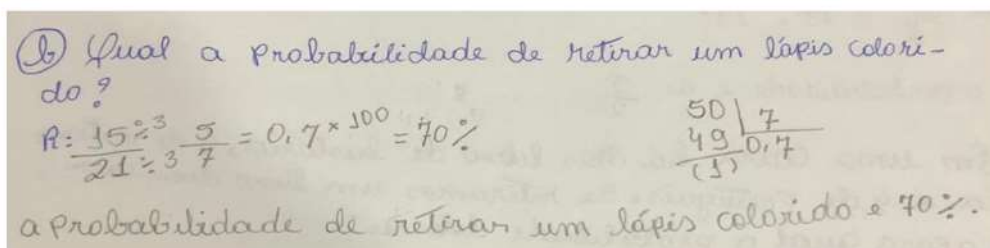 b) Qual a probabilidade de retirar um lápis colori-
do?
R: 15÷3/21÷3 5/7 = 0,7 × 100 = 70%
50 | 7
49 0,7
(1)
a probabilidade de retirar um lápis colorido e 70%.